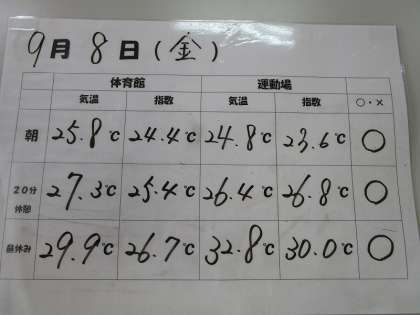 9月8日(金)
体育館 運動場
気温 指数 気温 指数 ○・×
朝 25.8℃ 24.4℃ 24.8℃ 23.6℃ ○
20分休憩 27.3℃ 25.4℃ 26.4℃ 26.8℃ ○
昼休み 29.9℃ 26.7℃ 32.8℃ 30.0℃ ○